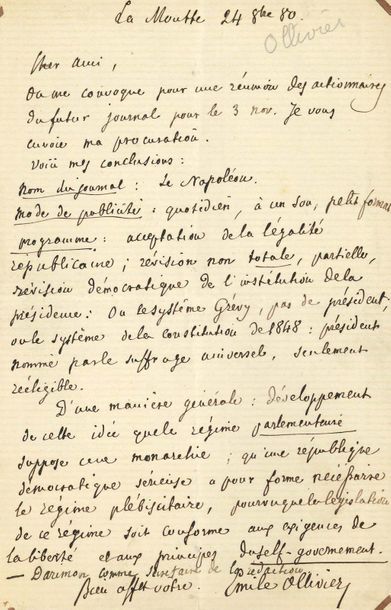 La Moutte 24 8bre 80.
Ollivier
Cher ami,
On me convoque pour une réunion des actionnaires
du futur journal pour le 3 nov. Je vous
envoie ma procuration.
Voici mes conclusions :
nom du journal : Le Napoléon.
mode de publicité : quotidien, à un sou, petit format
programme : acceptation de la légalité
républicaine ; révision non totale, partielle,
révision démocratique de l'institution de la
présidence : Ou le système Grévy, pas de président,
ou le système de la constitution de 1848 : président
nommé par le suffrage universel, seulement
rééligible.
D'une manière générale : développement
de cette idée que le régime parlementaire
suppose une monarchie ; qu'une république
démocratique sérieuse a pour forme nécessaire
le régime plébiscitaire, pourvu que la législation
de ce régime soit conforme aux exigences de
la liberté et aux principes du self-government.
— Darimon comme secrétaire de la rédaction
Bien afft votre. Emile Ollivier